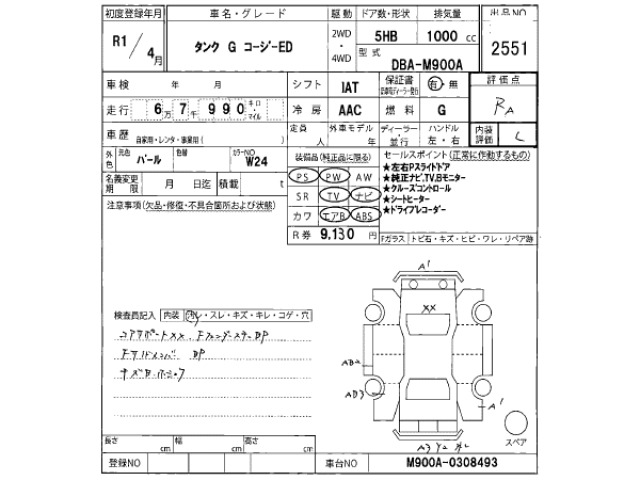 初度登録年月 車名・グレード 駆動 ドア数・形状 排気量 出品NO
R1/4月 タンク G コージーED 2WD・4WD 5HB 1000 cc 2551
型式 DBA-M900A
車検 年 月 シフト IAT 保証書 有・無 評価点
走行 6万7千990 キロ・マイル 冷房 AAC 燃料 G RA
車歴 自家用・レンタ・事業用( ) 定員 人 外車モデル 年 ディーラー・並行 ハンドル 左・右 内装評価 C
外色 元色 パール 色替 カラーNO W24 装備品(純正品に限る) セールスポイント(正常に作動するもの)
名義変更期限 月 日迄 積載 t PS PW AW
★左右Pスライドドア
★純正ナビ.TV.Bモニター
SR TV ナビ
★クルーズコントロール
★シートヒーター
カワ エアB ABS
★ドライブレコーダー
注意事項(欠品・修復・不具合箇所および状態)
R券 9,130 円 Fガラス トビ石・キズ・ヒビ・ワレ・リペア跡
検査員記入 内装 汚レ・スレ・キズ・キレ・コゲ・穴
コアサポートXX
BP
キズ
A1
XX
AB2
AB3
A1
スペア
長さ cm 幅 cm 高さ cm
登録NO 車台NO M900A-0308493